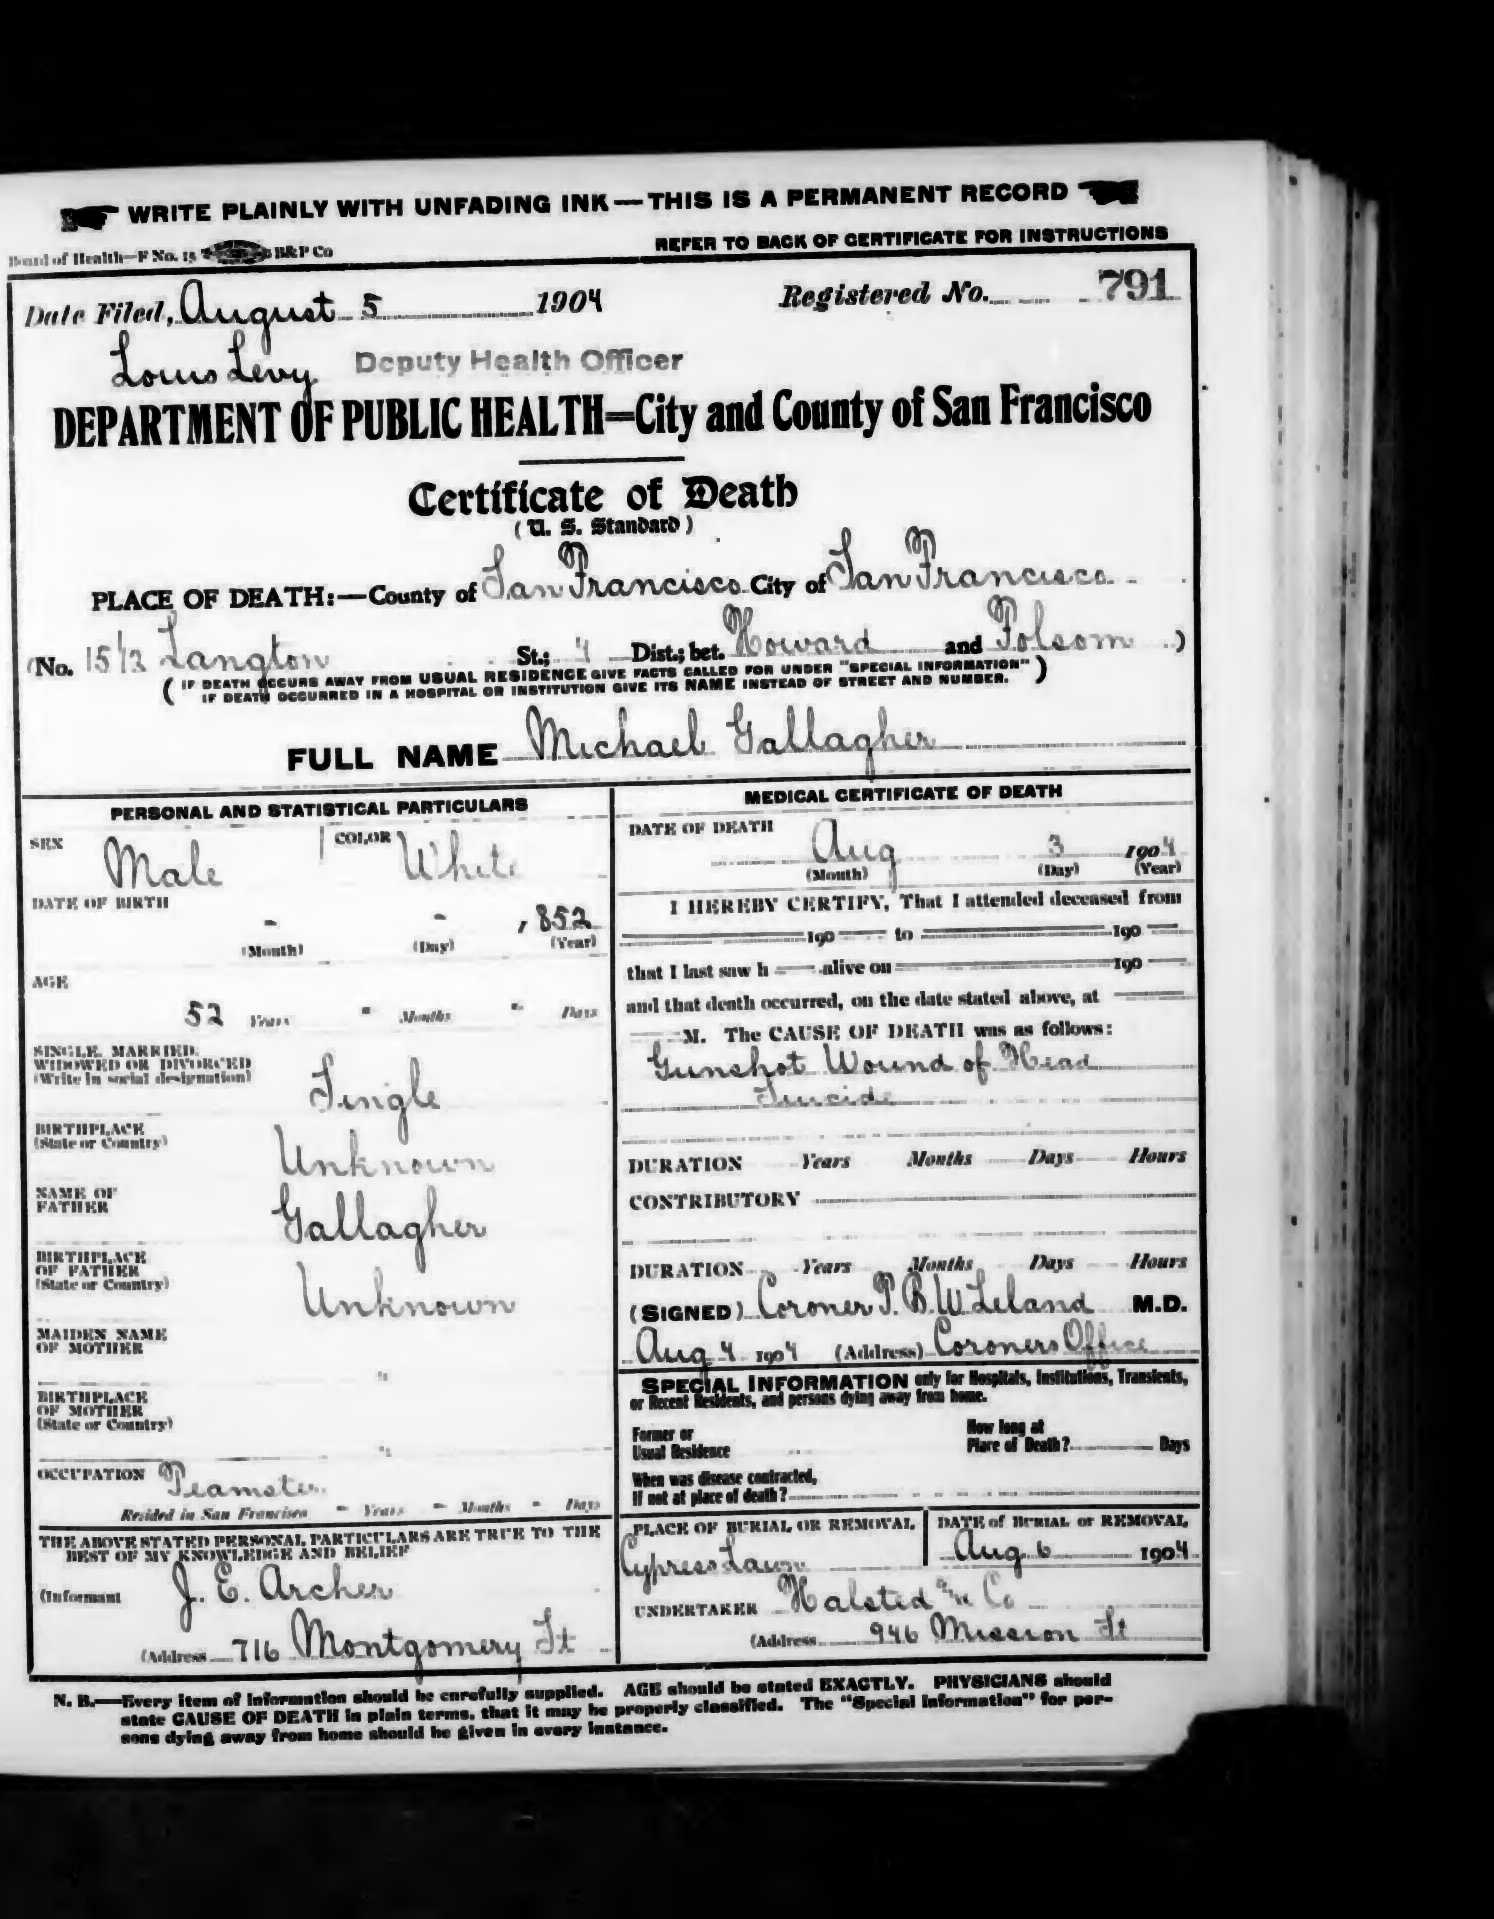 WRITE PLAINLY WITH UNFADING INK — THIS IS A PERMANENT RECORD
Board of Health—F No. 15 B&P Co
REFER TO BACK OF CERTIFICATE FOR INSTRUCTIONS
Date Filed, August 5 1904 Registered No. 791
Louis Levy Deputy Health Officer
DEPARTMENT OF PUBLIC HEALTH=City and County of San Francisco
Certificate of Death
(U. S. Standard)
PLACE OF DEATH:—County of San Francisco City of San Francisco
(No. 15 1/2 Langton St.; 4 Dist.; bet. Howard and Folsom )
( IF DEATH OCCURS AWAY FROM USUAL RESIDENCE GIVE FACTS CALLED FOR UNDER "SPECIAL INFORMATION" )
IF DEATH OCCURRED IN A HOSPITAL OR INSTITUTION GIVE ITS NAME INSTEAD OF STREET AND NUMBER.
FULL NAME Michael Gallagher
PERSONAL AND STATISTICAL PARTICULARS
SEX Male COLOR White
DATE OF BIRTH
- - , 852
(Month) (Day) (Year)
AGE
52 Years " Months " Days
SINGLE, MARRIED,
WIDOWED OR DIVORCED
(Write in social designation)
Single
BIRTHPLACE
(State or Country)
Unknown
NAME OF
FATHER
Gallagher
BIRTHPLACE
OF FATHER
(State or Country)
Unknown
MAIDEN NAME
OF MOTHER
"
BIRTHPLACE
OF MOTHER
(State or Country)
"
OCCUPATION Teamster
Resided in San Francisco - Years - Months - Days
THE ABOVE STATED PERSONAL PARTICULARS ARE TRUE TO THE
BEST OF MY KNOWLEDGE AND BELIEF
(Informant J. E. Archer
(Address 716 Montgomery St
MEDICAL CERTIFICATE OF DEATH
DATE OF DEATH
Aug 3 1904
(Month) (Day) (Year)
I HEREBY CERTIFY, That I attended deceased from
190 to 190
that I last saw h alive on 190
and that death occurred, on the date stated above, at
M. The CAUSE OF DEATH was as follows:
Gunshot Wound of Head
Suicide
DURATION Years Months Days Hours
CONTRIBUTORY
DURATION Years Months Days Hours
(SIGNED) Coroner T. B. W. Leland M.D.
Aug 4 1904 (Address) Coroners Office
SPECIAL INFORMATION only for Hospitals, Institutions, Transients,
or Recent Residents, and persons dying away from home.
Former or
Usual Residence
How long at
Place of Death? Days
When was disease contracted,
If not at place of death?
PLACE OF BURIAL OR REMOVAL
Cypress Lawn
DATE of BURIAL or REMOVAL
Aug 6 1904
UNDERTAKER Halsted & Co
(Address 946 Mission St
N. B.—Every item of information should be carefully supplied. AGE should be stated EXACTLY. PHYSICIANS should
state CAUSE OF DEATH in plain terms, that it may be properly classified. The "Special Information" for per-
sons dying away from home should be given in every instance.